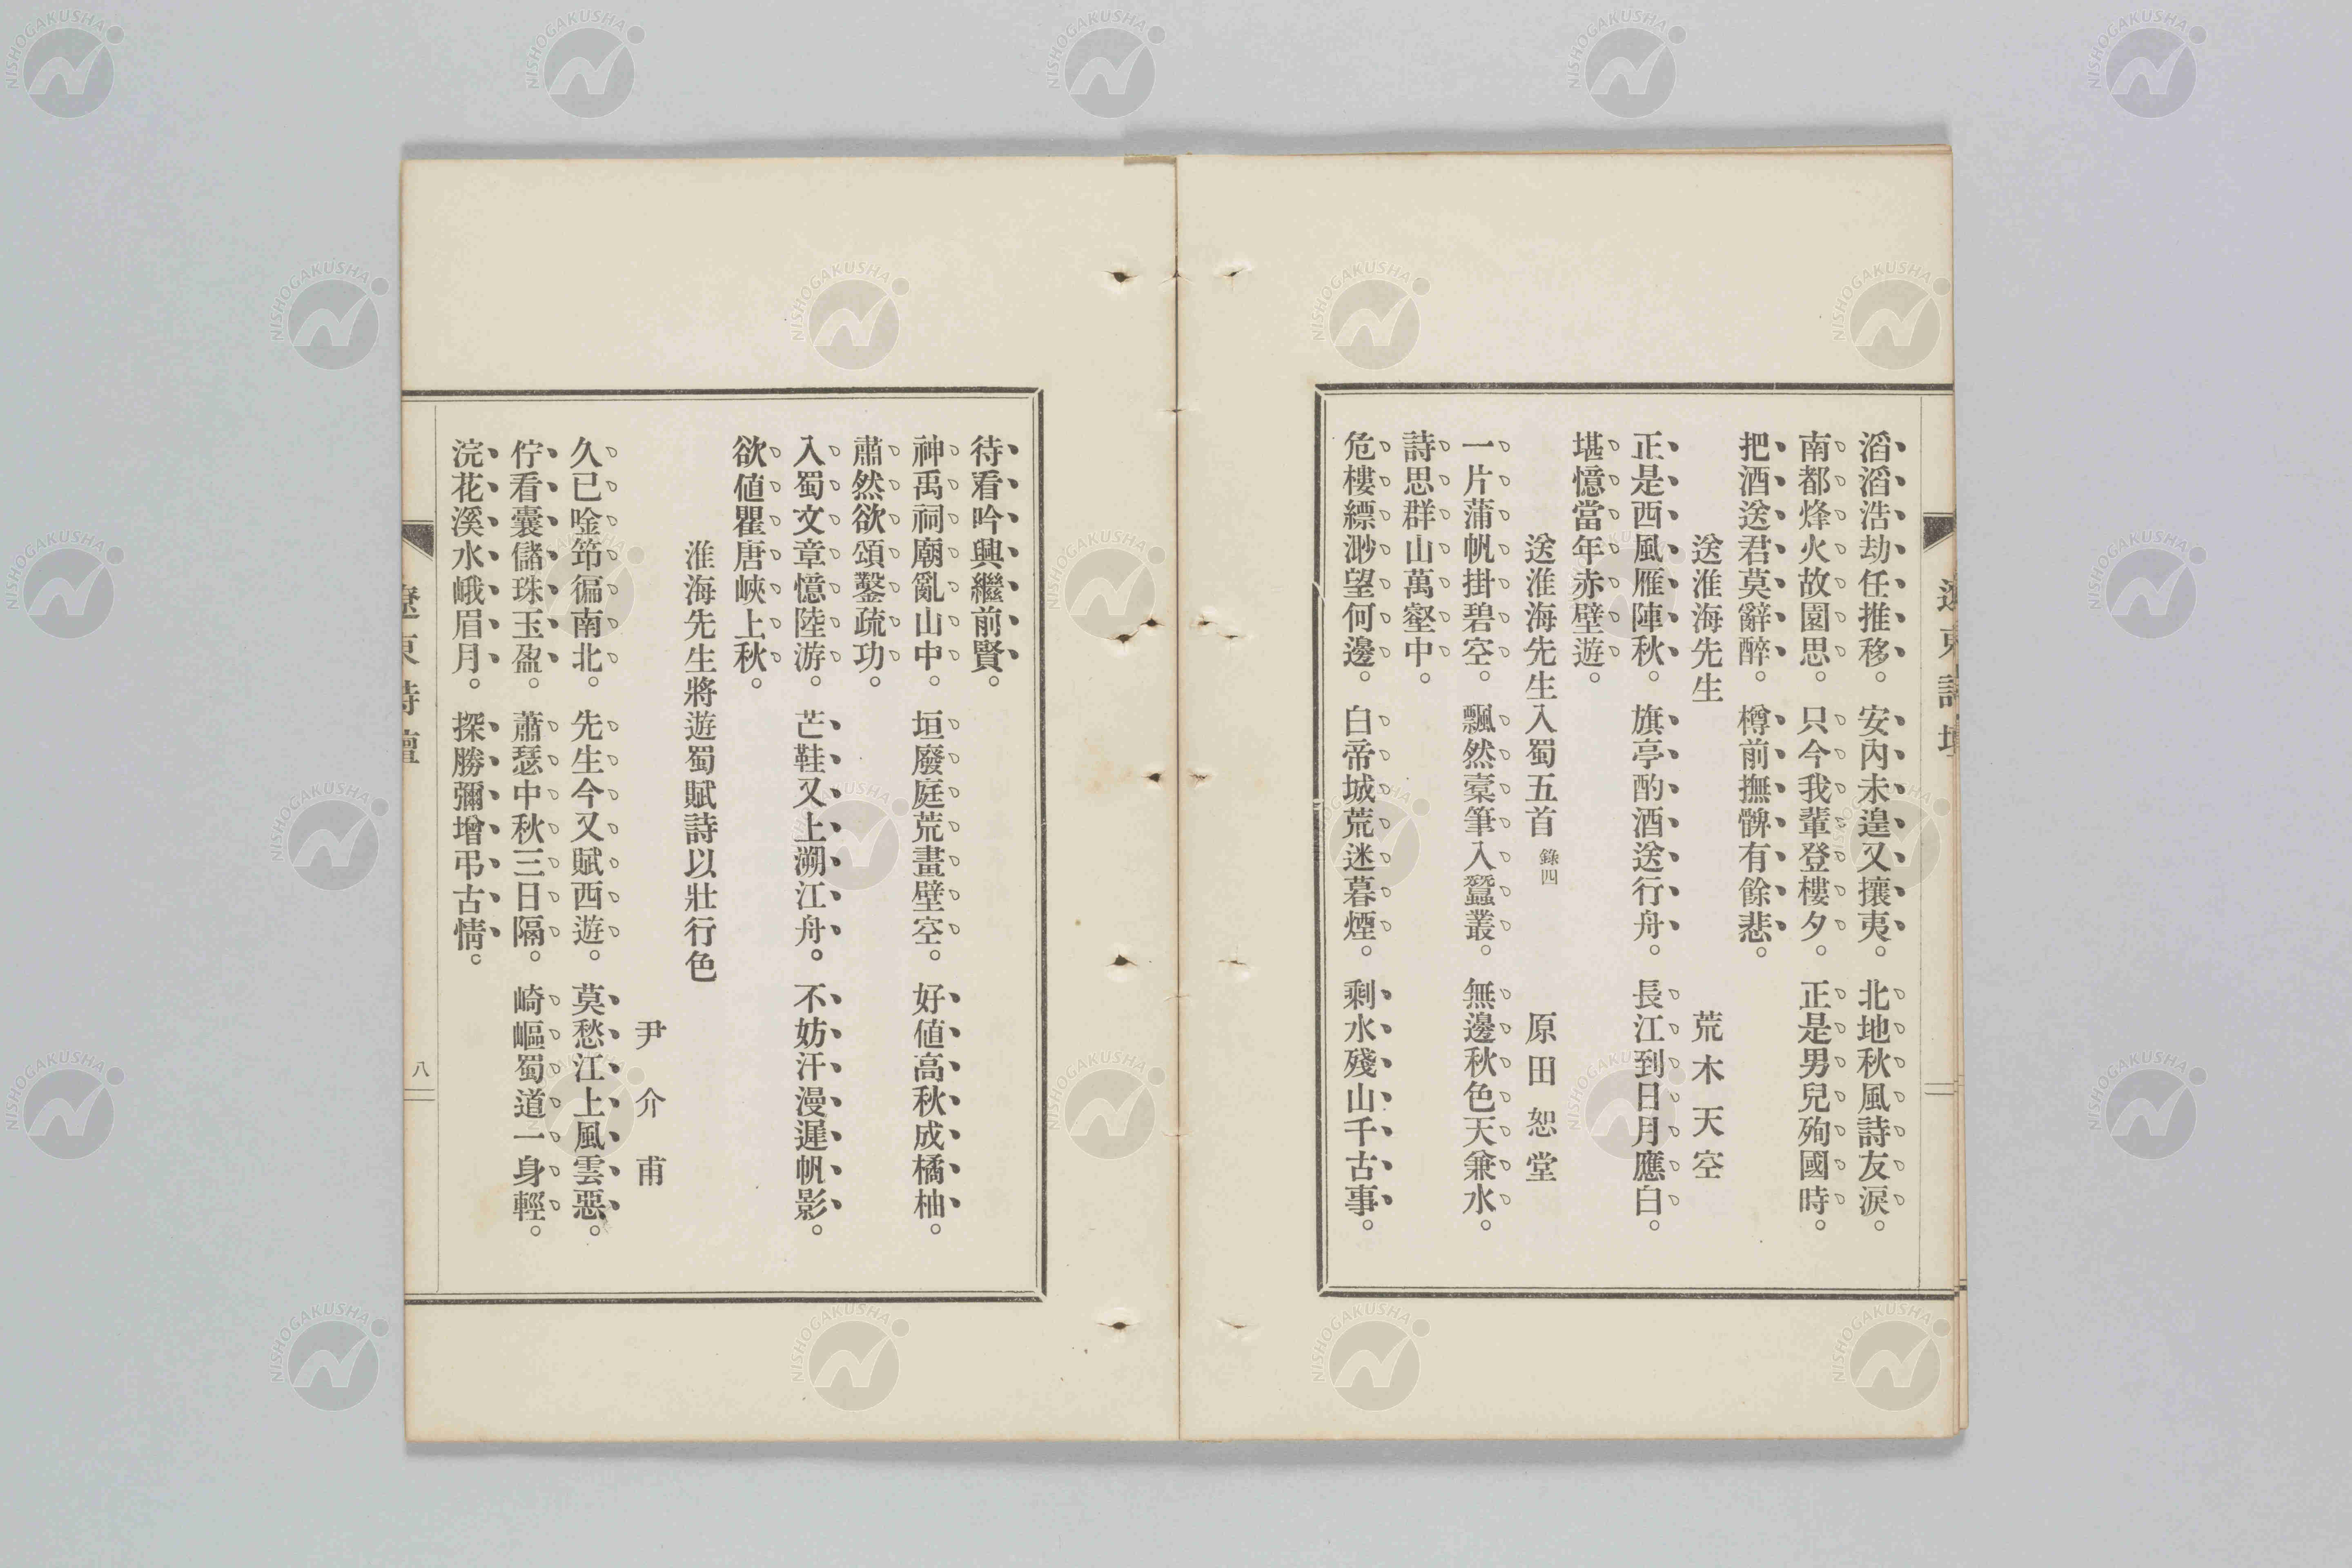 滔滔浩劫任推移。安內未遑又攘夷。北地秋風詩友淚。
南都烽火故園思。只今我輩登樓夕。正是男兒殉國時。
把酒送君莫辭醉。樽前撫髀有餘悲。
送淮海先生 荒木天空
正是西風雁陣秋。旗亭酌酒送行舟。長江到日月應白。
堪憶當年赤壁遊。
送淮海先生入蜀五首 錄四 原田恕堂
一片蒲帆掛碧空。飄然槖筆入蠶叢。無邊秋色天兼水。
詩思群山萬壑中。
危樓縹渺望何邊。白帝城荒迷暮煙。剩水殘山千古事。
待看吟興繼前賢。
神禹祠廟亂山中。垣廢庭荒畫壁空。好値高秋成橘柚。
肅然欲頌鑿疏功。
入蜀文章憶陸游。芒鞋又上溯江舟。不妨汗漫遲帆影。
欲値瞿唐峽上秋。
淮海先生將遊蜀賦詩以壯行色
尹介甫
久已唫笻徧南北。先生今又賦西遊。莫愁江上風雲惡。
佇看囊儲珠玉盈。蕭瑟中秋三日隔。崎嶇蜀道一身輕。
浣花溪水峨眉月。探勝彌增弔古情。
遼東詩壇
八
NISHOGAKUSHA